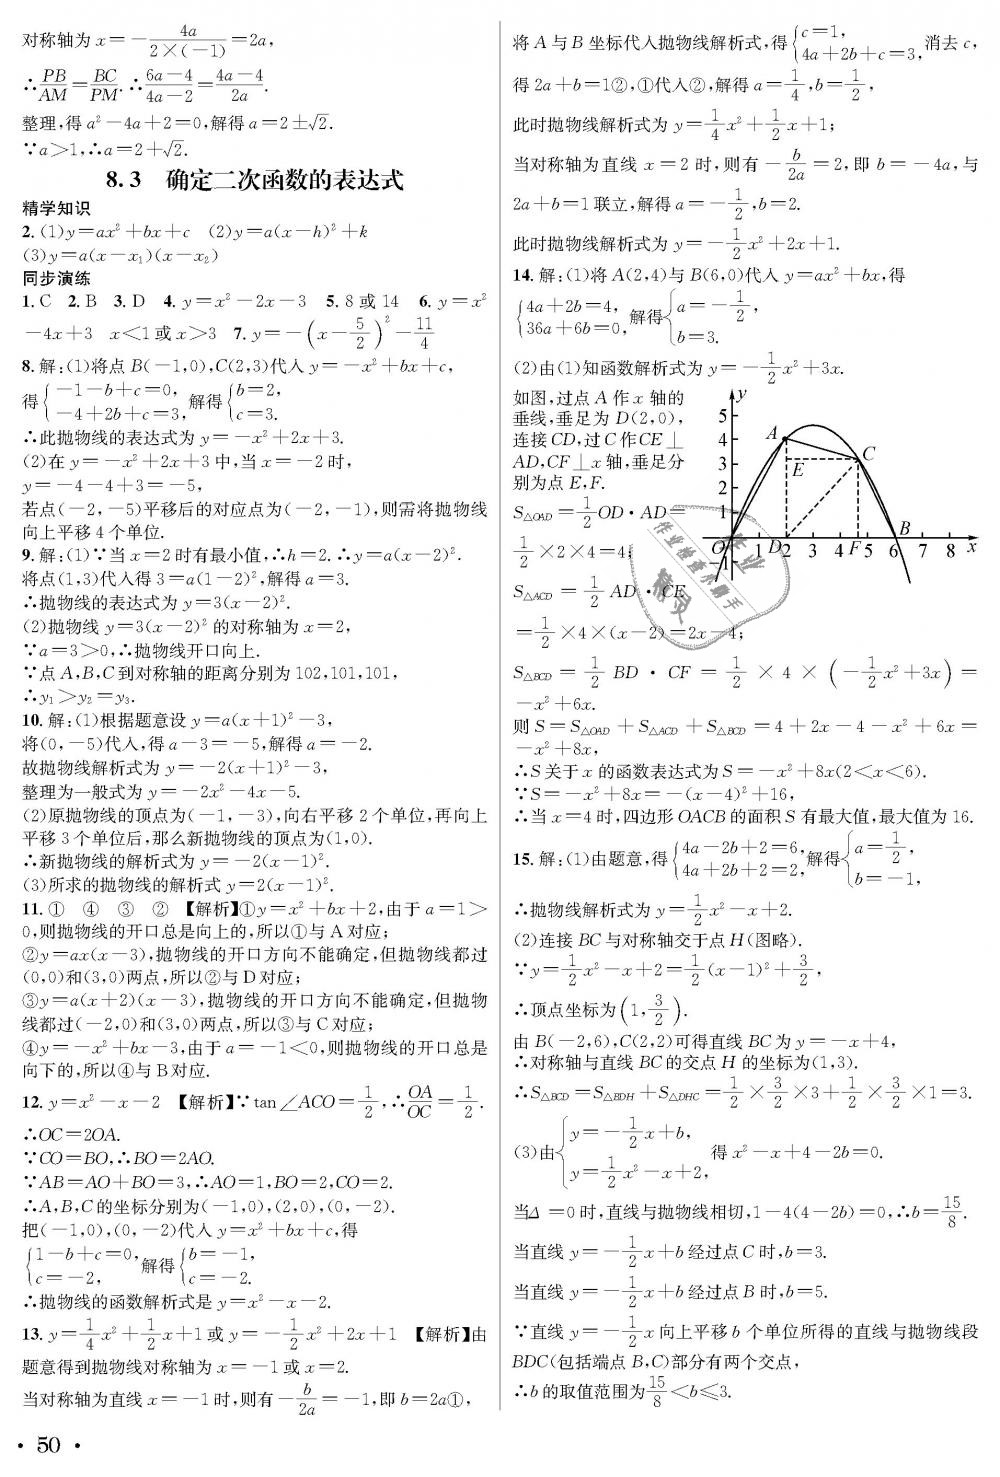 对称轴为 x=-\frac{4a}{2×(-1)}=2a,
∴\frac{PB}{AM}=\frac{BC}{PM}.∴\frac{6a-4}{4a-2}=\frac{4a-4}{2a}.
整理,得 a²-4a+2=0,解得 a=2±√2.
∵a>1,∴a=2+√2.
8.3 确定二次函数的表达式
精学知识
2.(1)y=ax²+bx+c (2)y=a(x-h)²+k
(3)y=a(x-x₁)(x-x₂)
同步演练
1.C 2.B 3.D 4.y=x²-2x-3 5.8 或 14 6.y=x²
-4x+3 x<1 或 x>3 7.y=-(x-\frac{5}{2})²-\frac{11}{4}
8.解:(1)将点 B(-1,0),C(2,3)代入 y=-x²+bx+c,
得{-1-b+c=0, -4+2b+c=3, 解得{b=2, c=3.
∴此抛物线的表达式为 y=-x²+2x+3.
(2)在 y=-x²+2x+3 中,当 x=-2 时,
y=-4-4+3=-5,
若点(-2,-5)平移后的对应点为(-2,-1),则需将抛物线
向上平移 4 个单位.
9.解:(1)∵当 x=2 时有最小值,∴h=2.∴y=a(x-2)².
将点(1,3)代入得 3=a(1-2)²,解得 a=3.
∴抛物线的表达式为 y=3(x-2)².
(2)抛物线 y=3(x-2)² 的对称轴为 x=2,
∵a=3>0,∴抛物线开口向上.
∵点 A,B,C 到对称轴的距离分别为 102,101,101,
∴y₁>y₂=y₃.
10.解:(1)根据题意设 y=a(x+1)²-3,
将(0,-5)代入,得 a-3=-5,解得 a=-2.
故抛物线解析式为 y=-2(x+1)²-3,
整理为一般式为 y=-2x²-4x-5.
(2)原抛物线的顶点为(-1,-3),向右平移 2 个单位,再向上
平移 3 个单位后,那么新抛物线的顶点为(1,0).
∴新抛物线的解析式为 y=-2(x-1)².
(3)所求的抛物线的解析式 y=2(x-1)².
11.① ④ ③ ② 【解析】①y=x²+bx+2,由于 a=1>
0,则抛物线的开口总是向上的,所以①与 A 对应;
②y=ax(x-3),抛物线的开口方向不能确定,但抛物线都过
(0,0)和(3,0)两点,所以②与 D 对应;
③y=a(x+2)(x-3),抛物线的开口方向不能确定,但抛物
线都过(-2,0)和(3,0)两点,所以③与 C 对应;
④y=-x²+bx-3,由于 a=-1<0,则抛物线的开口总是
向下的,所以④与 B 对应.
12.y=x²-x-2 【解析】∵tan∠ACO=\frac{1}{2},∴\frac{OA}{OC}=\frac{1}{2}.
∴OC=2OA.
∵CO=BO,∴BO=2AO.
∵AB=AO+BO=3,∴AO=1,BO=2,CO=2.
∴A,B,C 的坐标分别为(-1,0),(2,0),(0,-2).
把(-1,0),(0,-2)代入 y=x²+bx+c,得
{1-b+c=0, c=-2, 解得{b=-1, c=-2.
∴抛物线的函数解析式是 y=x²-x-2.
13.y=\frac{1}{4}x²+\frac{1}{2}x+1 或 y=-\frac{1}{2}x²+2x+1 【解析】由
题意得到抛物线对称轴为 x=-1 或 x=2.
当对称轴为直线 x=-1 时,则有-\frac{b}{2a}=-1,即 b=2a①,
· 50 ·
将 A 与 B 坐标代入抛物线解析式,得{c=1, 4a+2b+c=3, 消去 c,
得 2a+b=1②,①代入②,解得 a=\frac{1}{4},b=\frac{1}{2},
此时抛物线解析式为 y=\frac{1}{4}x²+\frac{1}{2}x+1;
当对称轴为直线 x=2 时,则有-\frac{b}{2a}=2,即 b=-4a,与
2a+b=1 联立,解得 a=-\frac{1}{2},b=2.
此时抛物线解析式为 y=-\frac{1}{2}x²+2x+1.
14.解:(1)将 A(2,4)与 B(6,0)代入 y=ax²+bx,得
{4a+2b=4, 36a+6b=0, 解得{a=-\frac{1}{2}, b=3.
(2)由(1)知函数解析式为 y=-\frac{1}{2}x²+3x.
如图,过点 A 作 x 轴的
垂线,垂足为 D(2,0),
连接 CD,过 C 作 CE⊥
AD,CF⊥x 轴,垂足分
别为点 E,F.
S△OAD=\frac{1}{2}OD·AD=
\frac{1}{2}×2×4=4;
S△ACD=\frac{1}{2}AD·CE
=\frac{1}{2}×4×(x-2)=2x-4;
y
5
4
3
2
1
-1
A
C
E
B
O
1
2
3
4
5
6
7
8
x
D
F
作业
作业检查小助手
精灵
S△BCD=\frac{1}{2}BD·CF=\frac{1}{2}×4×(-\frac{1}{2}x²+3x)=
-x²+6x.
则 S=S△OAD+S△ACD+S△BCD=4+2x-4-x²+6x=
-x²+8x,
∴S 关于 x 的函数表达式为 S=-x²+8x(2<x<6).
∵S=-x²+8x=-(x-4)²+16,
∴当 x=4 时,四边形 OACB 的面积 S 有最大值,最大值为 16.
15.解:(1)由题意,得{4a-2b+2=6, 4a+2b+2=2, 解得{a=\frac{1}{2}, b=-1,
∴抛物线解析式为 y=\frac{1}{2}x²-x+2.
(2)连接 BC 与对称轴交于点 H(图略).
∵y=\frac{1}{2}x²-x+2=\frac{1}{2}(x-1)²+\frac{3}{2},
∴顶点坐标为(1,\frac{3}{2}).
由 B(-2,6),C(2,2)可得直线 BC 为 y=-x+4,
∴对称轴与直线 BC 的交点 H 的坐标为(1,3).
∴S△BCD=S△BDH+S△DHC=\frac{1}{2}×\frac{3}{2}×3+\frac{1}{2}×\frac{3}{2}×1=3.
(3)由{y=-\frac{1}{2}x+b, y=\frac{1}{2}x²-x+2, 得 x²-x+4-2b=0.
当Δ=0 时,直线与抛物线相切,1-4(4-2b)=0,∴b=\frac{15}{8}.
当直线 y=-\frac{1}{2}x+b 经过点 C 时,b=3.
当直线 y=-\frac{1}{2}x+b 经过点 B 时,b=5.
∵直线 y=-\frac{1}{2}x 向上平移 b 个单位所得的直线与抛物线段
BDC(包括端点 B,C)部分有两个交点,
∴b 的取值范围为\frac{15}{8}<b≤3.